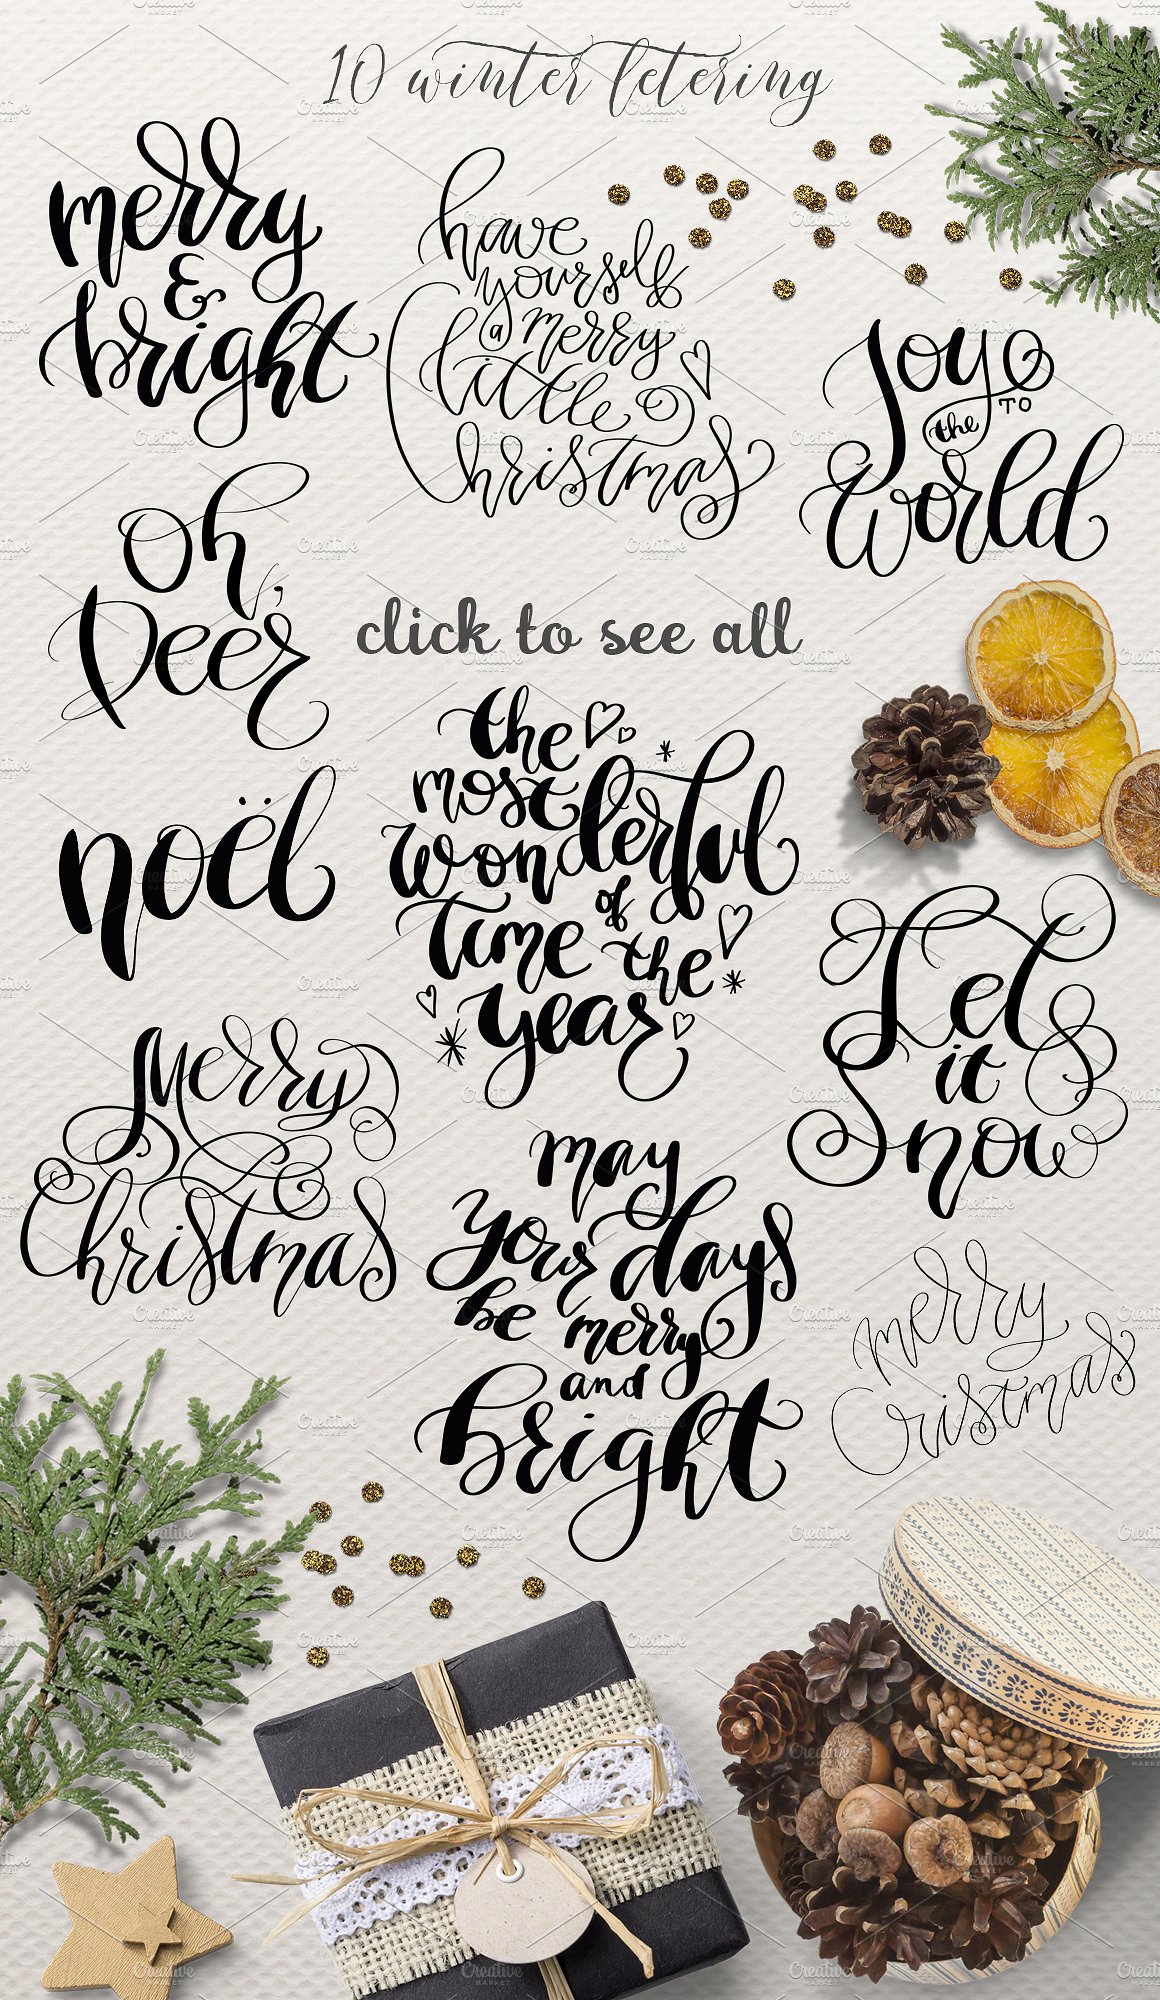 10 winter letering
merry
&
bright
have
yourself
a merry
little
christmas
Joy TO
the
World
Oh,
Deer
click to see all
noël
the
most
wonderful
time of the
year
Let
it
Snow
Merry
Christmas
may
your days
be merry
and
bright
merry
Cristmas
Creative
MARKET